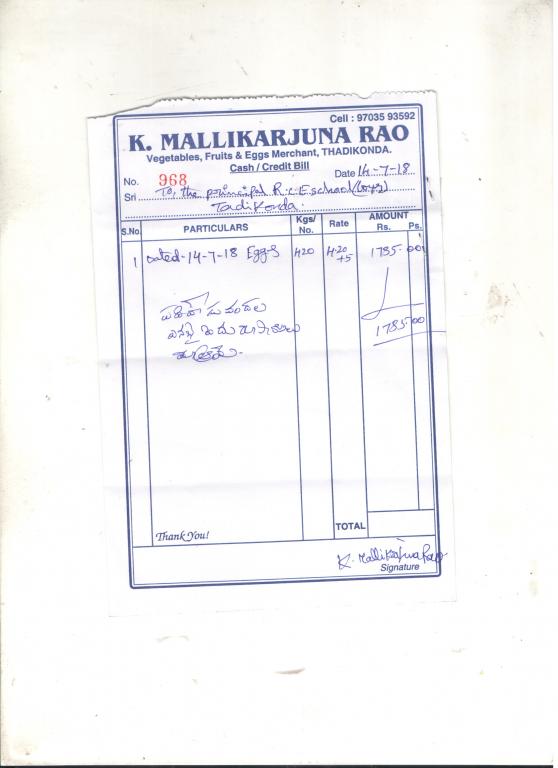 Cell : 97035 93592
K. MALLIKARJUNA RAO
Vegetables, Fruits & Eggs Merchant, THADIKONDA.
Cash / Credit Bill
No. 968 Date 14-7-18
Sri To, the principal R.C.E school (Boys)
Tadikonda.
S.No. PARTICULARS Kgs/No. Rate AMOUNT Rs. Ps.
1 Dated-14-7-18 Eggs 420 4.20 1785.00
+5
1785.00
Thank You!
TOTAL
K. Mallikarjuna Rao
Signature